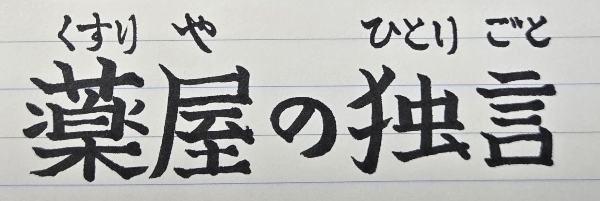 くすり や ひとり ごと
薬屋の独言